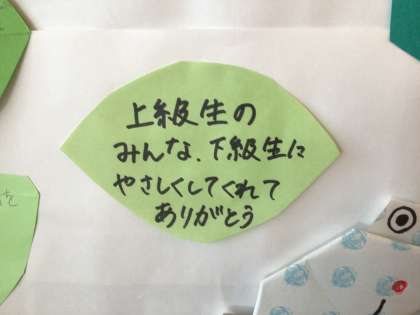 上級生の
みんな、下級生に
やさしくしてくれて
ありがとう